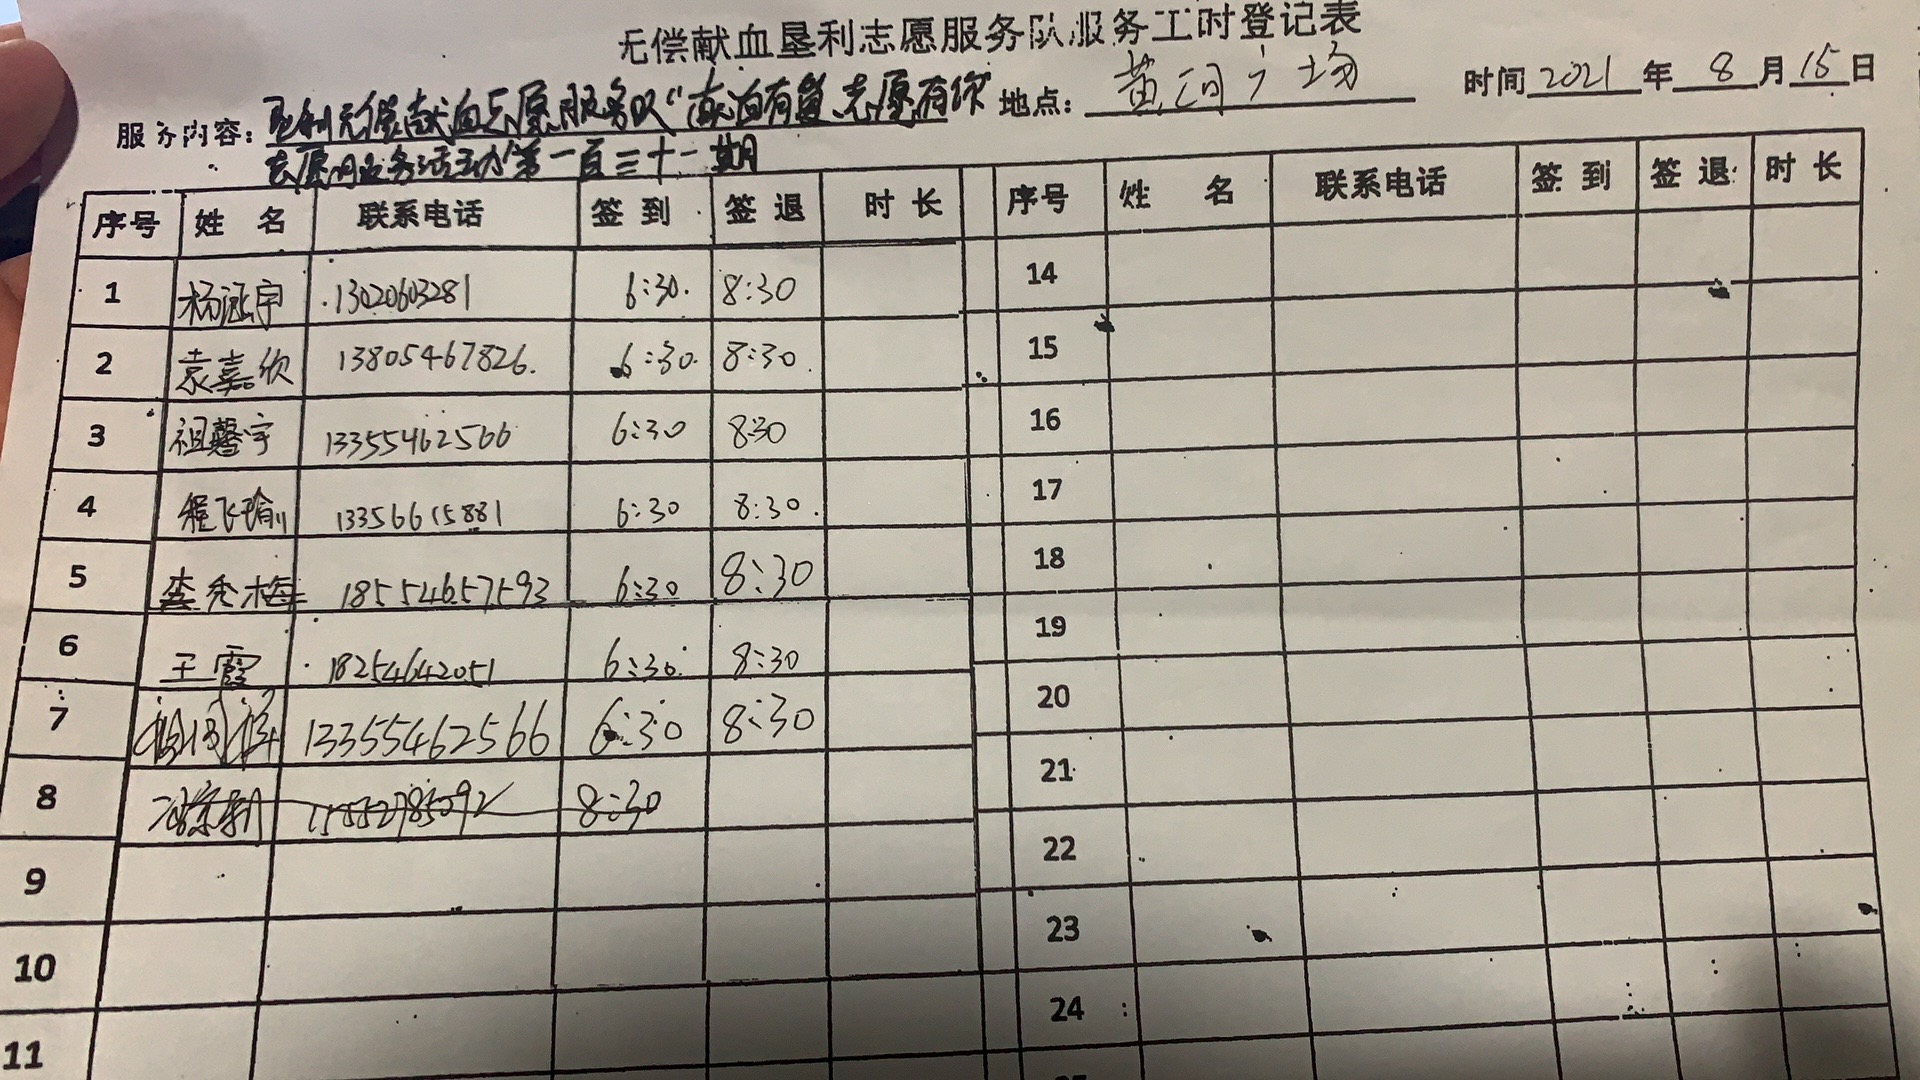 无偿献血垦利志愿服务队服务工时登记表
服务内容：垦利无偿献血志愿服务队“献泊有益 志愿有你” 地点：黄河广场 时间 2021 年 8 月 15 日
志愿服务活动 第一百三十一期
序号 姓名 联系电话 签到 签退 时长 序号 姓名 联系电话 签到 签退 时长
1 杨涵宇 13020603281 6:30 8:30 14
2 袁嘉欣 13805467826 6:30 8:30 15
3 祖馨宇 13355462566 6:30 8:30 16
4 程飞瑜 13356615881 6:30 8:30 17
5 李秀梅 18554657593 6:30 8:30 18
6 王霞 18254642051 6:30 8:30 19
7 13355462566 6:30 8:30 20
8 8:30 21
9 22
10 23
11 24